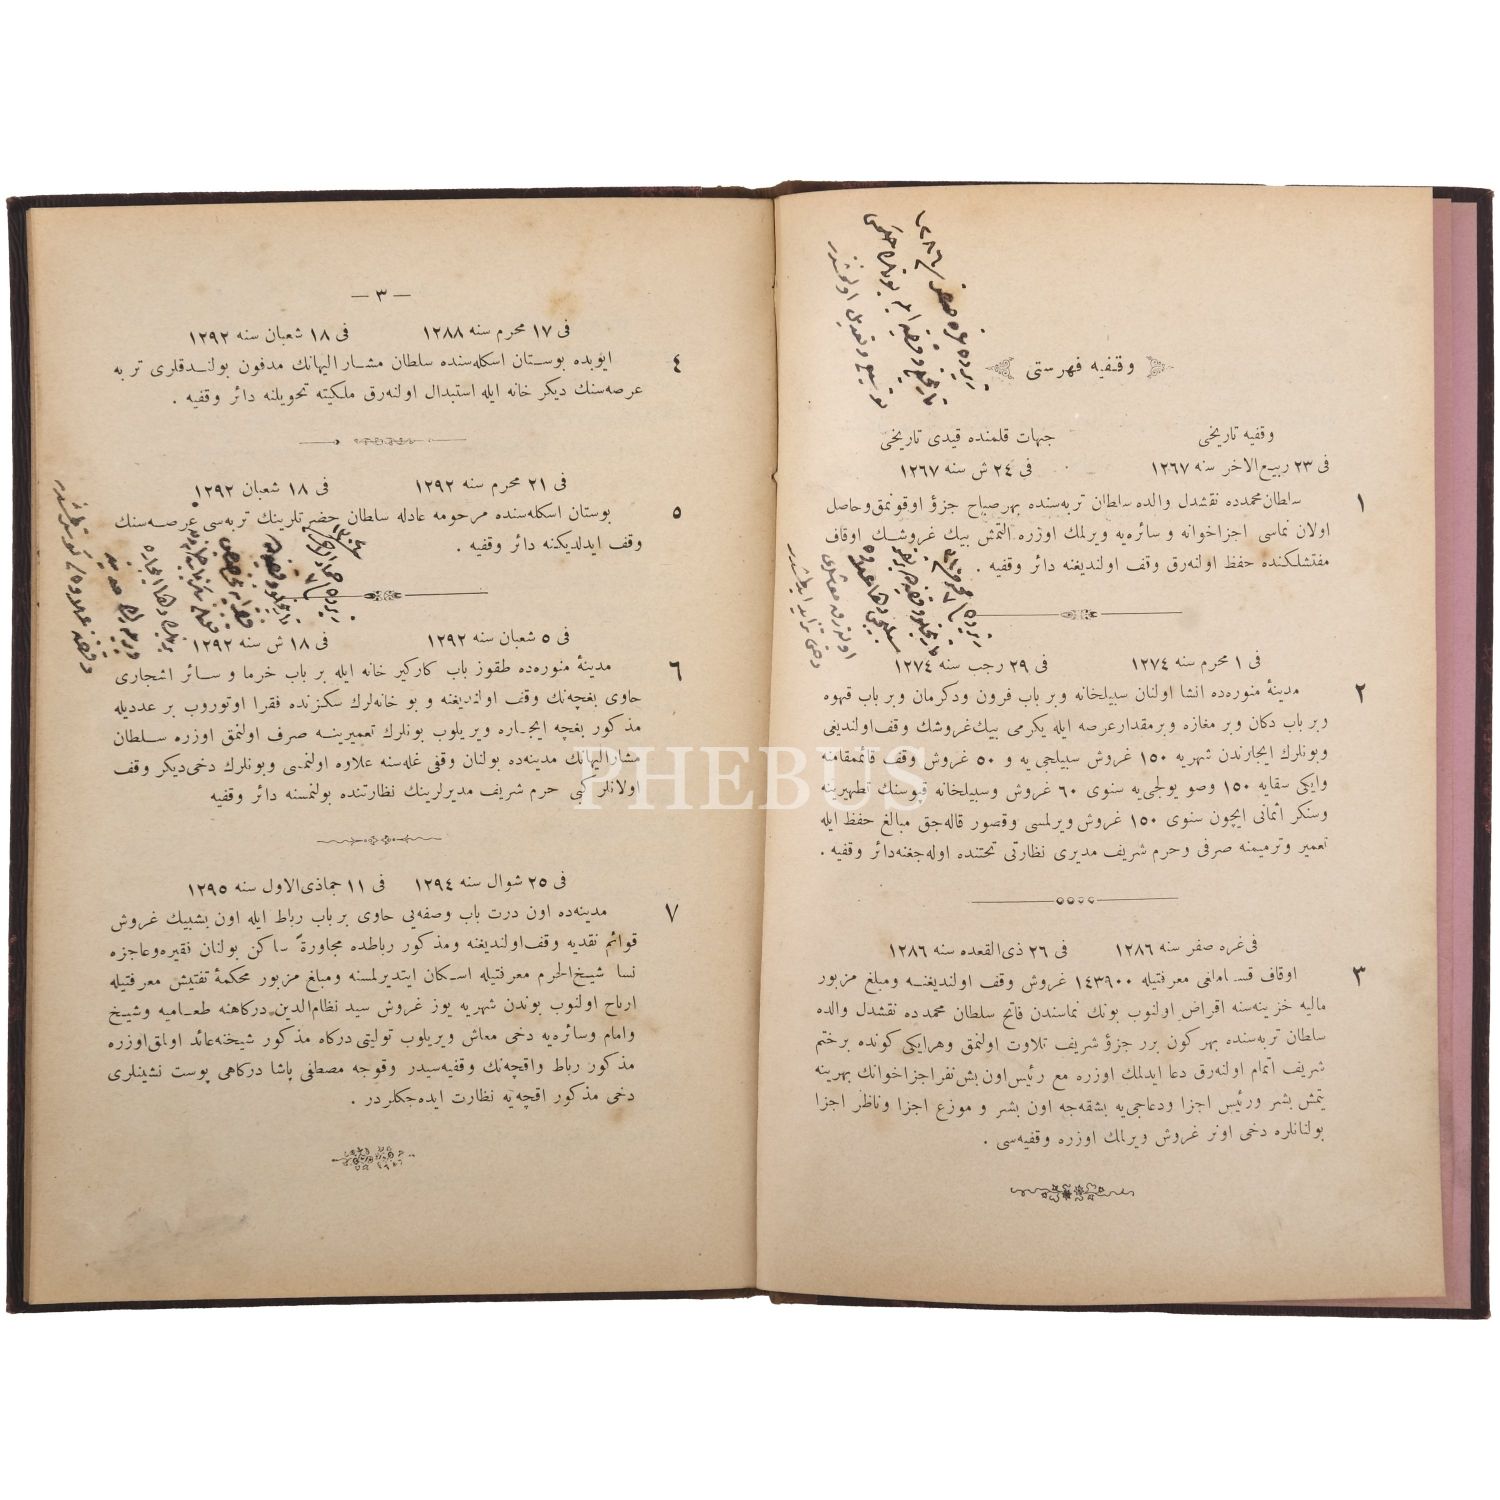 وقفیه فهرستی
وقفیه تاریخی
جهات قلمنده قیدی تاریخی
فی ٢٣ ربیع‌الاخر سنه ١٢٦٧
فی ٢٤ ش سنه ١٢٦٧
١
سلطان‌محمدده نقشدل والده سلطان تربه‌سنده بهر صباح جزؤ اوقونمق‌وحاصل
اولان نماسی اجزاخوانه و سائره‌یه ویرلمك اوزره التمش بیك غروشـك اوقاف
مفتشلكنده حفظ اولنه‌رق وقف اولندیغنه دائر وقفیه .
فی ١ محرم سنه ١٢٧٤
فی ٢٩ رجب سنه ١٢٧٤
٢
مدینهٔ منوره‌ده انشا اولنان سبیلخانه وبر باب فرون ودكرمان وبر باب قهوه
وبر باب دكان وبر مغازه وبرمقدار عرصه ایله یكرمی بیك‌غروشك وقف‌اولندیغی
وبونلرك ایجارندن شهریه ١٥٠ غروش سبیلجی‌یه و ٥٠ غروش وقف قائممقامنه
وایكی سقایه ١٥٠ وصو یولجی‌یه سنوی ٦٠ غروش وسبیلخانه قپوسنك تطهیرینه
وسنكر اثمانی ایچون سنوی ١٥٠ غروش ویرلمسی وقصور قاله‌جق مبالغ حفظ ایله
تعمیر وترمیمنه صرفی وحرم شریف مدیری نظارتی تحتنده اوله‌جغنه دائر وقفیه .
فی غره صفر سنه ١٢٨٦
فی ٢٦ ذی‌القعده سنه ١٢٨٦
٣
اوقاف قسـاملغی معرفتیله ١٤٣٩٠٠ غروش وقف اولندیغنـه ومبلغ مزبور
مالیه خزینه‌سنه اقراض اولنوب بونك نماسندن فاتح سلطان محمدده نقشدل والده
سلطان تربه‌سنده بهر كون برر جزؤ شریف تلاوت اولنمق وهرایكی كونده برختم
شریف اتمام اولنه‌رق دعا ایدلمك اوزره مع رئیس‌اون‌بش‌نفر اجزاخوانك بهرینه
یتمش بشر ورئیس اجزا ودعاجی‌یه بشقه‌جه اون بشر و موزع اجزا وناظر اجزا
بولنانلره دخی اونر غروش ویرلمك اوزره وقفیه‌سی .
— ٣ —
فی ١٧ محرم سنه ١٢٨٨
فی ١٨ شعبان سنه ١٢٩٢
٤
ایوبده بوستان اسكله‌سنده سلطان مشـار الیهانك مدفون بولنـدقلری تربه
عرصه‌سنك دیكر خانه ایله استبدال اولنه‌رق ملكیته تحویلنه دائر وقفیه .
فی ٢١ محرم سنه ١٢٩٢
فی ١٨ شعبان ١٢٩٢
٥
بوستان اسكله‌سنده مرحومه عادله سلطان حضرتلرینك تربه‌سی عرصـه‌سنك
وقف ایدلدیكنه دائر وقفیه .
فی ٥ شعبان سنه ١٢٩٢
فی ١٨ ش سنه ١٢٩٢
٦
مدینهٔ منوره‌ده طقوز باب كارگیر خانه ایله بر باب خرما و سـائر اشجاری
حاوی بغچه‌نك وقف اولندیغنه و بو خانه‌لرك سكزنده فقرا اوتوروب بر عددیله
مذكور بغچه ایجـاره ویریلوب بونلرك تعمیرینـه صرف اولنمق اوزره سـلطان
مشار الیهانك مدینه‌ده بولنان وقفی غله‌سنه علاوه اولنمسی وبونلرك دخی‌دیكر وقف
اولانلر كبی حرم شریف مدیرلرینك نظارتنده بولنمسنه دائر وقفیه
فی ٢٥ شوال سنه ١٢٩٤
فی ١١ جماذی‌الاول سنه ١٢٩٥
٧
مدینه‌ده اون درت باب وصفه‌یی حاوی بر باب رباط ایله اون بشبیك غروش
قوائم نقدیه وقف‌اولندیغنه ومذكور رباطده مجاورةً ساكن بولنان فقیره‌وعاجزه
نسا شیخ‌الحرم معرفتیله اسـكان ایتدیرلمسنه ومبلغ مزبور محكمهٔ تفتیش معرفتیله
ارباح اولنوب بوندن شهریه یوز غروش سید نظام‌الدین دركاهنه طعـامیه وشیخ
وامام وسائره‌یه دخی معاش ویریلوب تولیتی دركاه مذكور شیخنه‌عائد اولمق‌اوزره
مذكور رباط واقچه‌نك وقفیه‌سیدر وقوجه مصطفی پاشا دركاهی پوست نشینلری
دخی مذكور اقچه‌یه نظارت ایده‌جكلردر .
PHEBUS